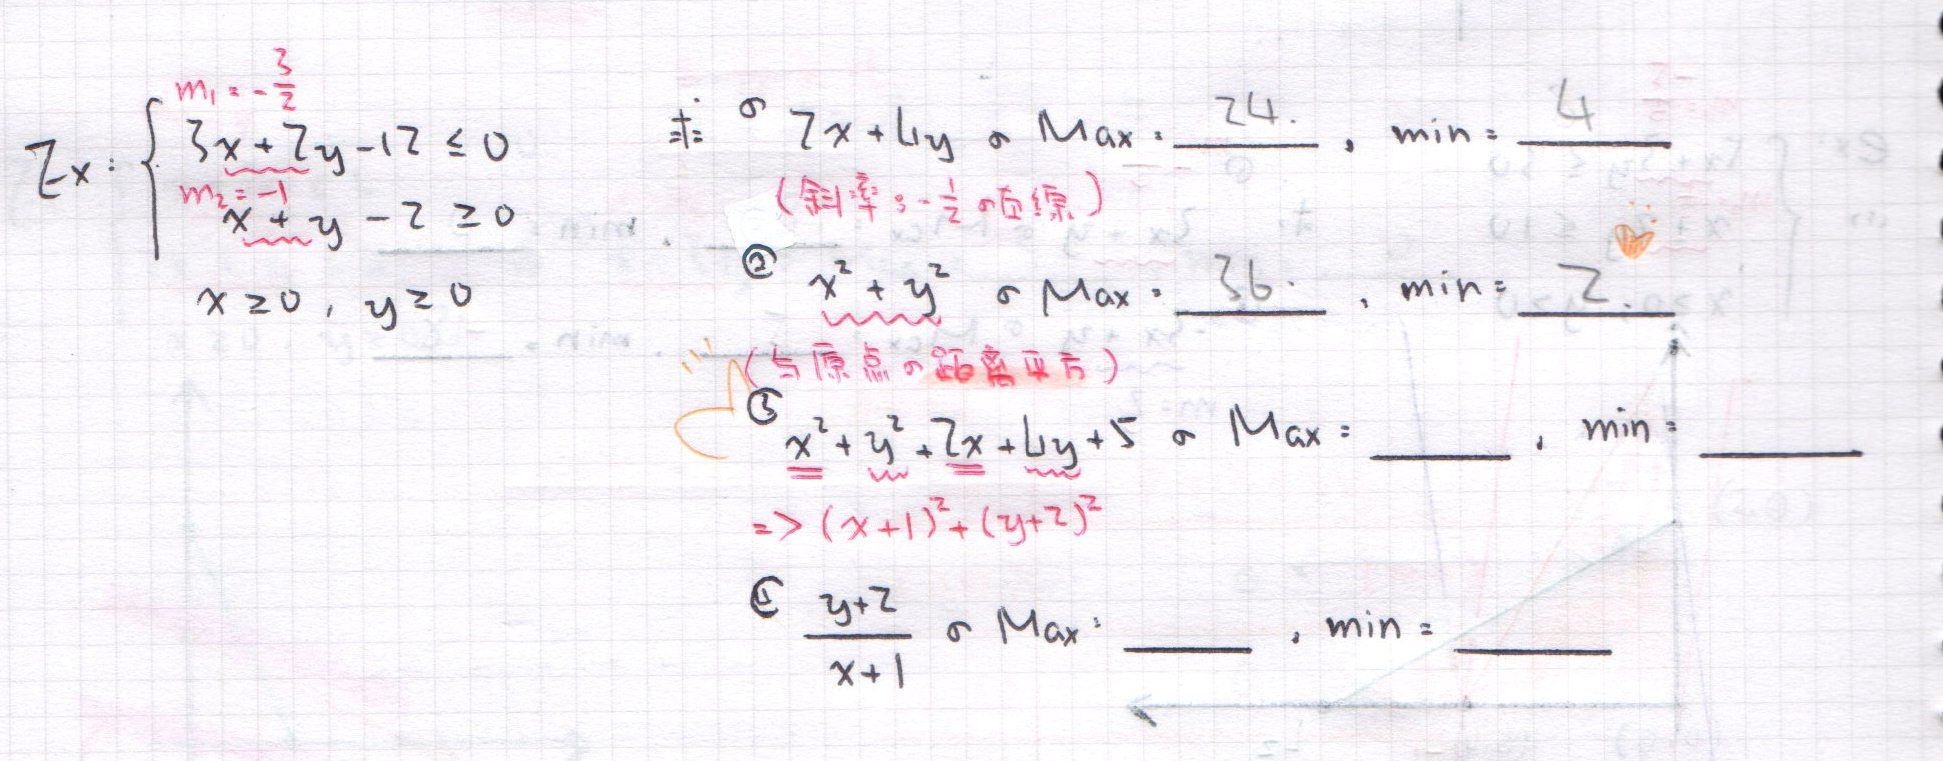 m₁ = -3/2
Ex: { 3x + 2y - 12 ≤ 0
m₂ = -1
x + y - 2 ≥ 0
x ≥ 0, y ≥ 0
求: ① 2x + 4y の Max = 24. , min = 4
(斜率: -1/2 の直線)
② x² + y² の Max = 36. , min = 2.
(与原点の距離平方)
③ x² + y² + 2x + 4y + 5 の Max = ____ , min = ____
=> (x+1)² + (y+2)²
④ (y+2)/(x+1) の Max = ____ , min = ____